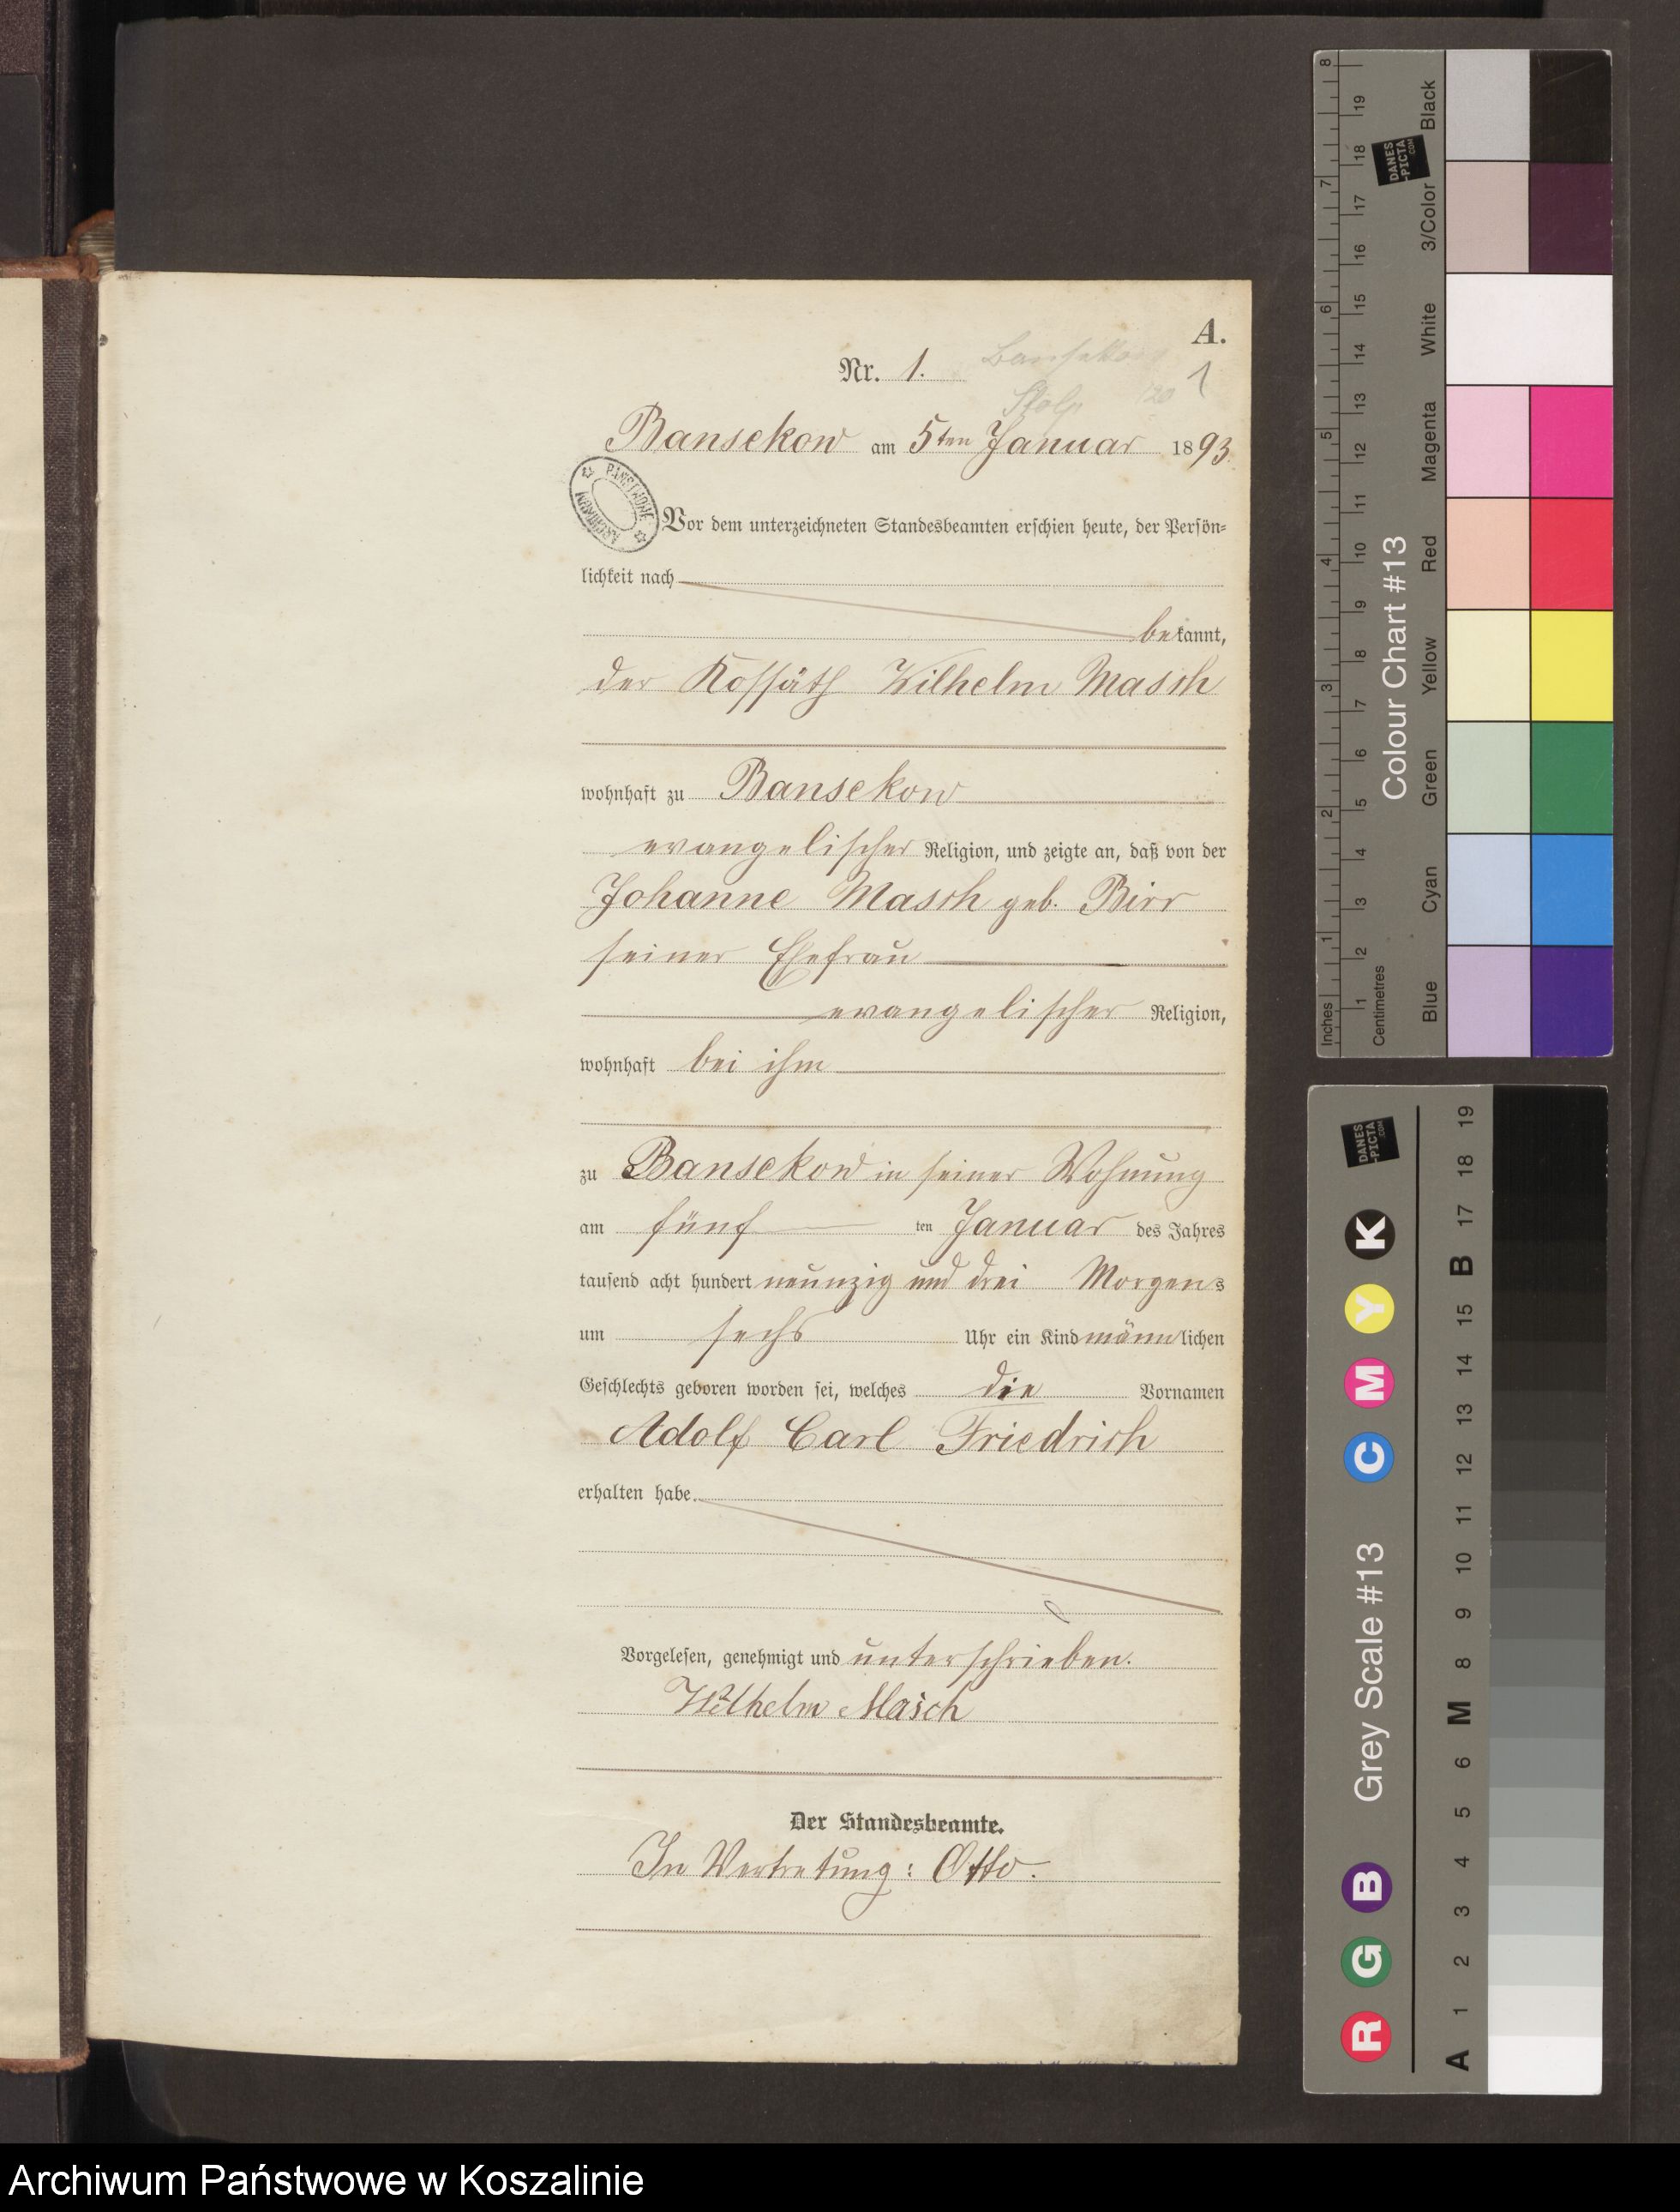 A.
Nr. 1.
1
Stolp 120
Bansekow am 5ten Januar 1893.
ARCHIWUM PAŃSTWOWE
Vor dem unterzeichneten Standesbeamten erschien heute, der Persön=
lichkeit nach
bekannt,
der Kossäth Wilhelm Masch
wohnhaft zu Bansekow
evangelischer Religion, und zeigte an, daß von der
Johanne Masch geb. Birr
seiner Ehefrau
evangelischer Religion,
wohnhaft bei ihm
zu Bansekow in seiner Wohnung
am fünf ten Januar des Jahres
tausend acht hundert neunzig und drei Morgens
um sechs Uhr ein Kind männlichen
Geschlechts geboren worden sei, welches die Vornamen
Adolf Carl Friedrich
erhalten habe.
Vorgelesen, genehmigt und unterschrieben.
Wilhelm Masch
Der Standesbeamte.
In Vertretung: Otto.
Inches 1 2 3 4 5 6 7 8
Centimetres 1 2 3 4 5 6 7 8 9 10 11 12 13 14 15 16 17 18 19
Colour Chart #13
DANES
-PICTA
.COM
Blue Cyan Green Yellow Red Magenta White 3/Color Black
R G B Grey Scale #13 C M Y K
DANES
-PICTA
.COM
A 1 2 3 4 5 6 M 8 9 10 11 12 13 14 15 B 17 18 19
Archiwum Państwowe w Koszalinie